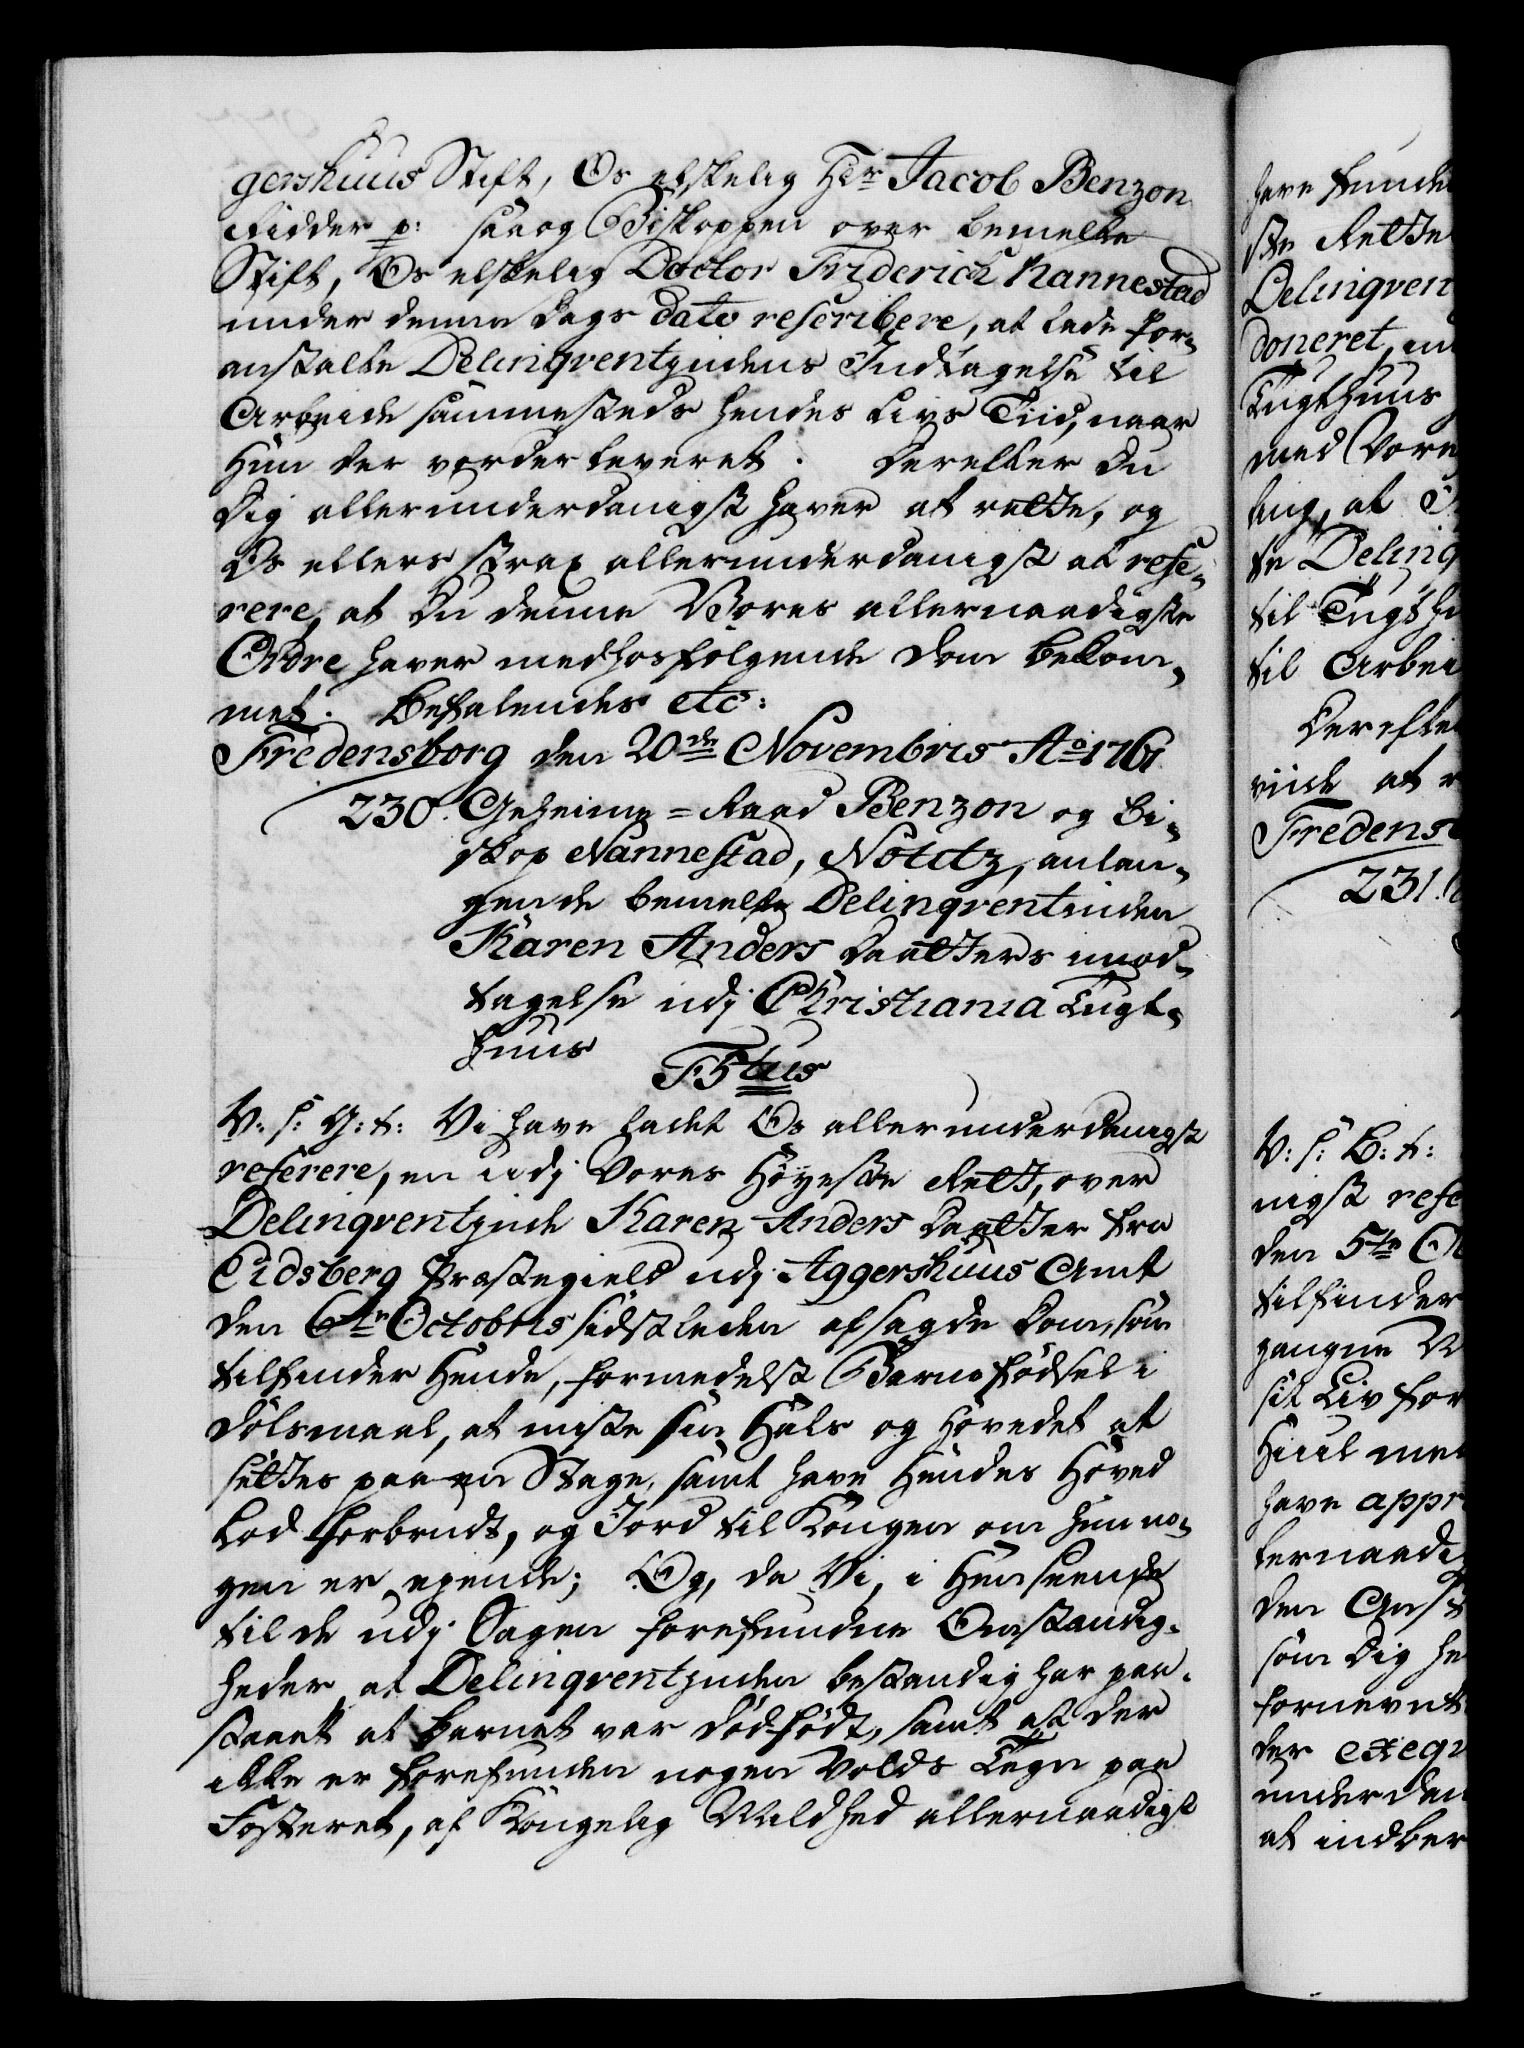 gershuus Stift, Os elskelig Hr Jacob Benzon
Ridder p: saa og Biskoppen over bemelte
Stift, Os elskelig Doctor Friderich Nannestad
under denne Dags dato rescribere, at lade for-
anstalte Delinqventindens Indtagelse til
Arbeide sammesteds hendes Livs Tiid, naar
Hun der vorder leveret. Derefter Du
Dig allerunderdanigst haver at rette, og
Os ellers strax allerunderdanigst at refe-
rere, at Du denne Vores allernaadigste
Ordre haver medhosfølgende Dom bekom-
met. Befalendes etc:
Fredensborg den 20de Novembris Ao 1761
230. Geheime-Raad Benzon og Bi-
skop Nannestad, Notitz, anlan-
gende bemelte Delinqventinden
Karen Anders Daatters imod-
tagelse udj Christiania Tugt-
huus
F5tus
V: s: G: t: Vi have ladet Os allerunderdanigst
referere, en udj Vores Høyeste Rett, over
Delinqventinde Karen Anders Daatter fra
Eidsberg Præstegield udj Aggershuus Amt
den 6te Octobris sidstleden afsagde Dom, som
tilfinder Hende, formedelst Barnefødsel i
Dølsmaal, at miste sin Hals og Hovedet at
settes paa en Stage, samt have Hendes Hoved
Lod forbrudt, og Jord til Kongen om Hun no-
gen er eyende; Og, da Vi, i Henseende
til de udj Sagen forefundne Omstændig-
heder, at Delinqventinden bestandig har paa-
staaet at Barnet var dødfødt, samt at der
ikke er forefunden nogen Volds Tegn paa
Fosteret, af Kongelig Mildhed allernaadigst
have funde
ste Rette
Delinqven
doneret, m
Tugthuus
med Vore
ling, at
te Delinq
til Tugthu
til Arbei
Derefte
viide at r
Fredens
231.
V: s: B: t:
nigst refe
den 5te O
tilfinder
gangne M
sit Liv for
Hiul me
have appr
lernaadi
den Anst
som Dig he
fornevnt
der exeqv
underdan
at indber